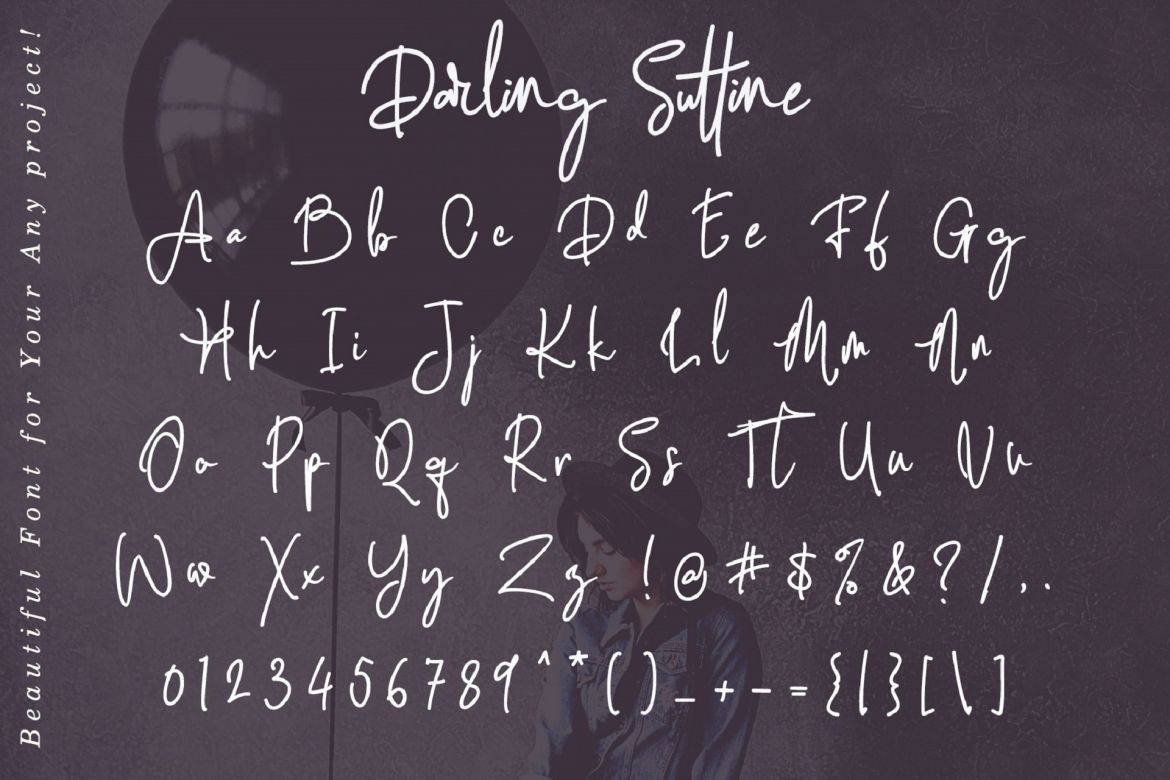 Beautiful Font for Your Any project!
Darling Suttine
Aa Bb Cc Dd Ee Ff Gg
Hh Ii Jj Kk Ll Mm Nn
Oo Pp Qq Rr Ss Tt Uu Vv
Ww Xx Yy Zz ! @ # $ % & ? / , .
0 1 2 3 4 5 6 7 8 9 ^ * ( ) _ + - = { | } [ \ ]